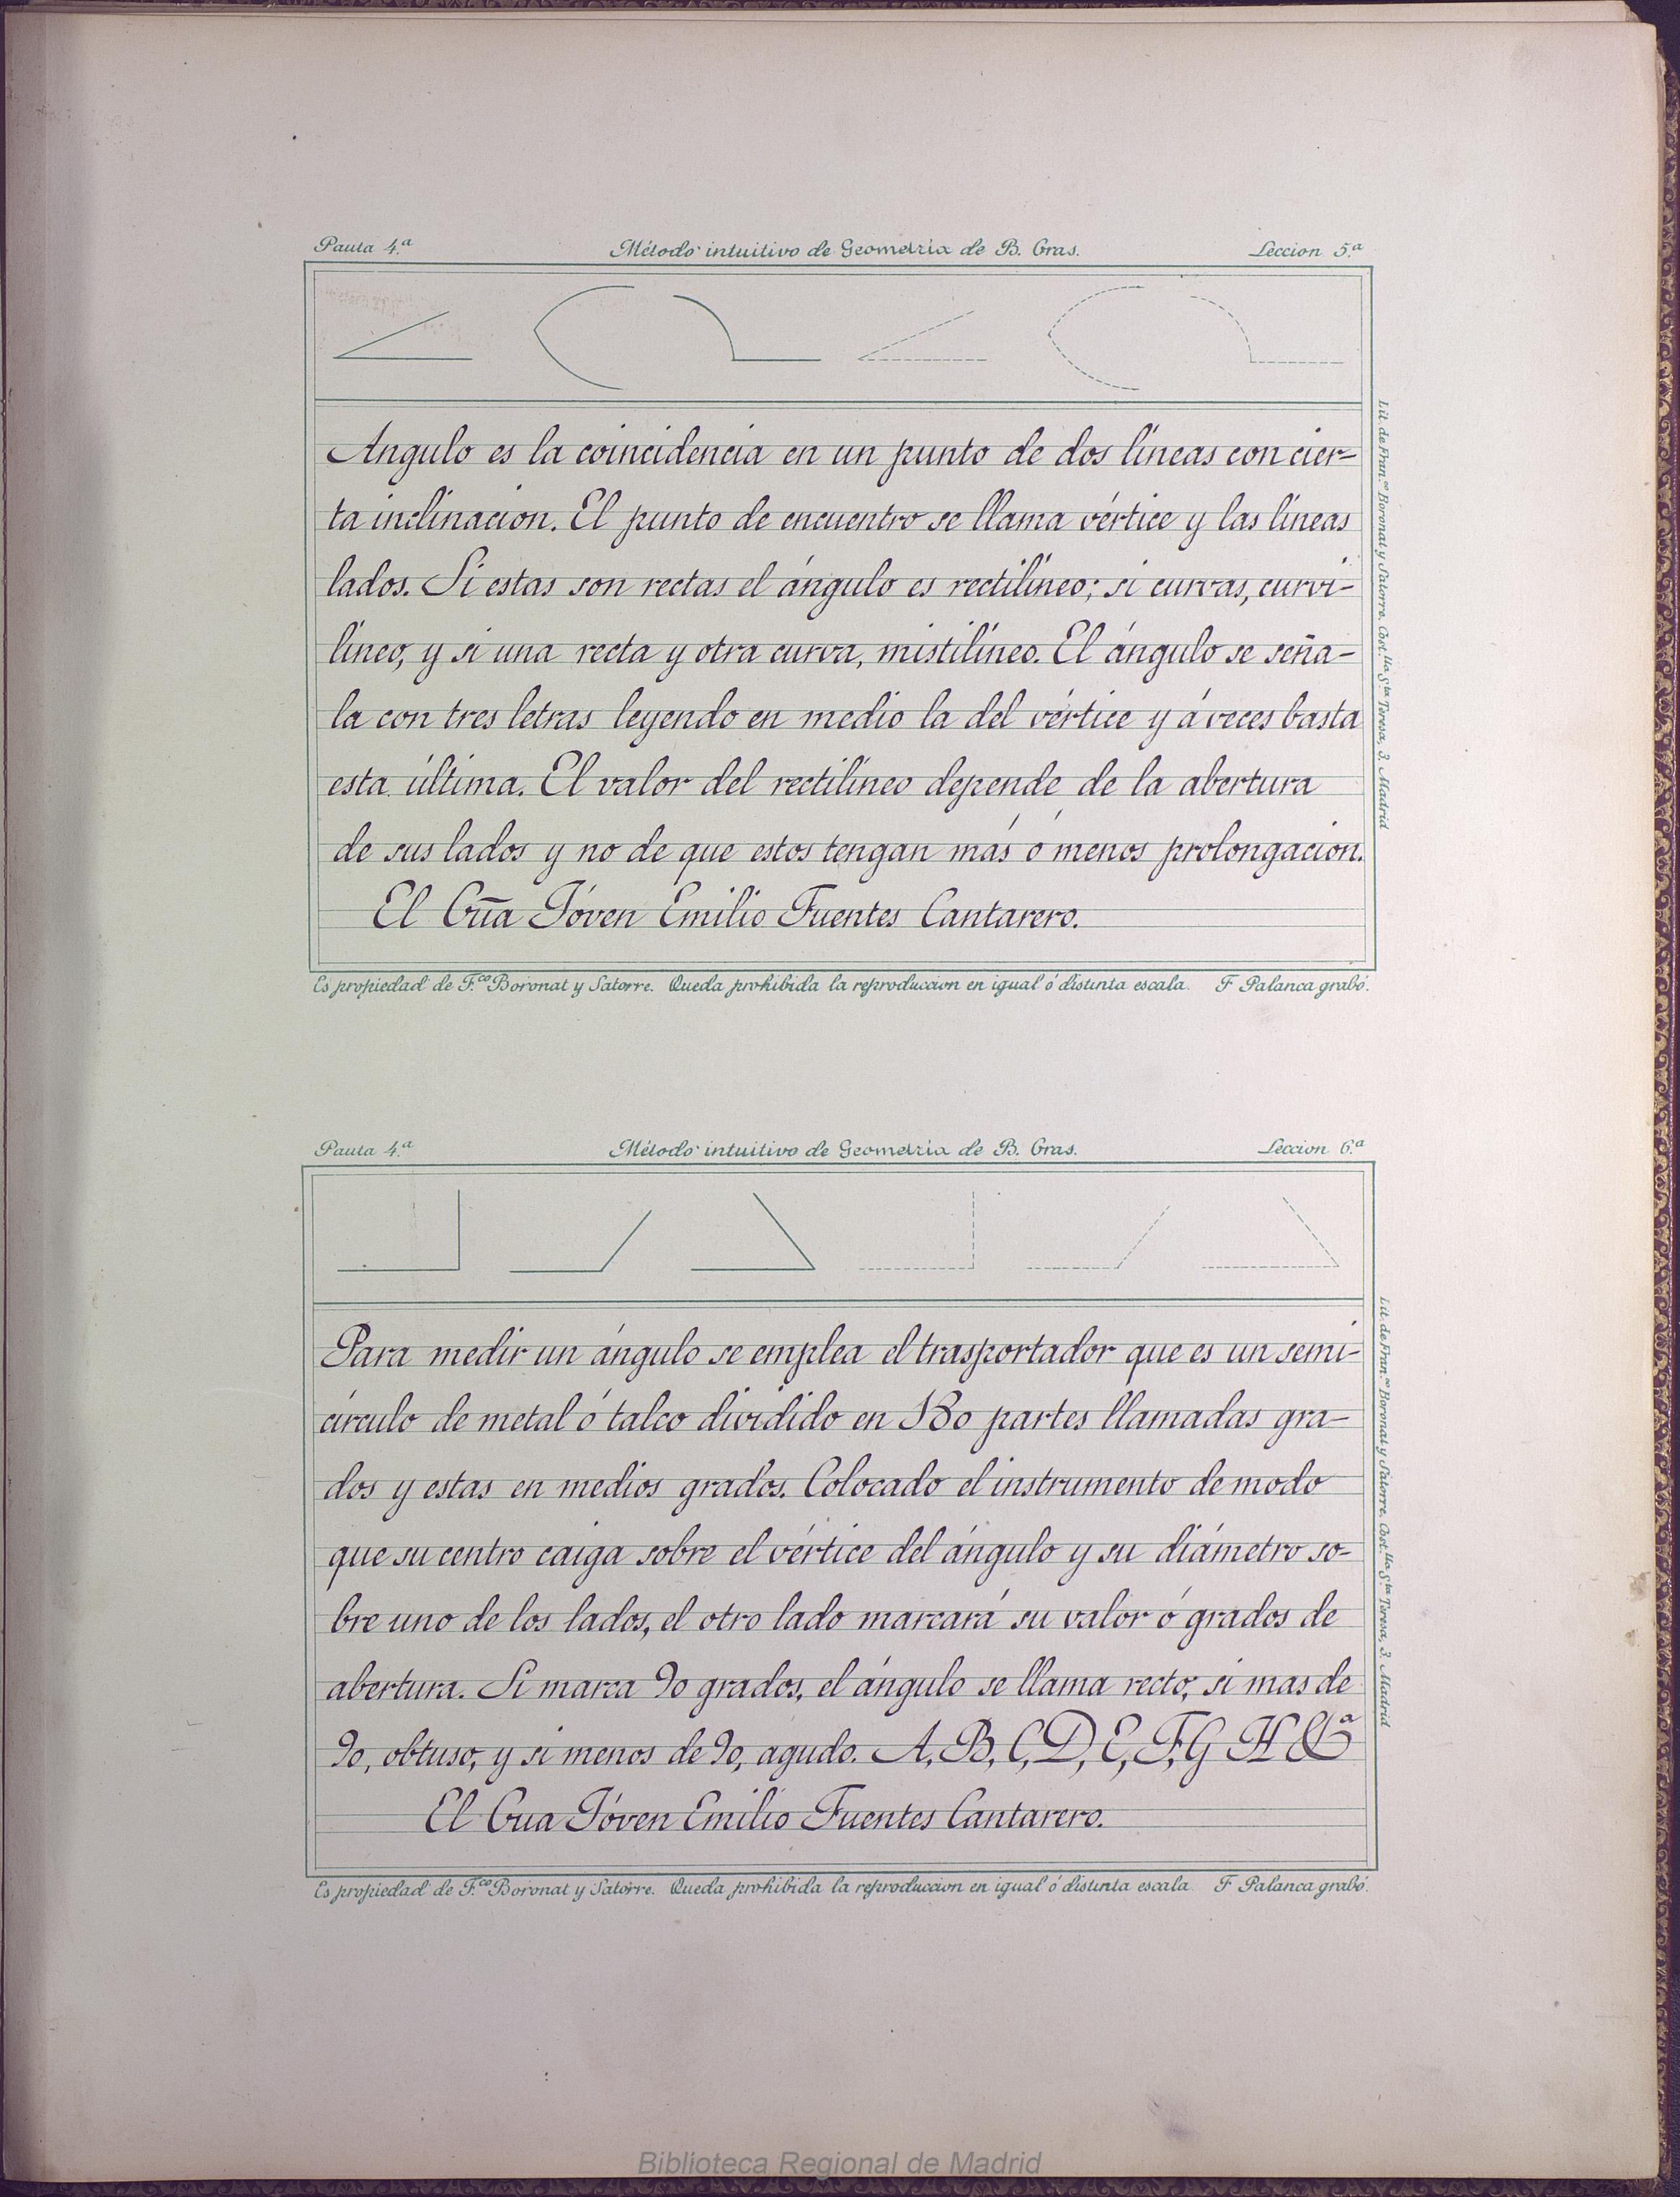 Pauta 4.ª Método intuitivo de Geometría de B. Gras. Leccion 5.ª
Angulo es la coincidencia en un punto de dos líneas con cier-
ta inclinacion. El punto de encuentro se llama vértice y las líneas
lados. Si estas son rectas el ángulo es rectilíneo; si curvas, curvi-
líneo, y si una recta y otra curva, mistilíneo. El ángulo se seña-
la con tres letras leyendo en medio la del vértice y á veces basta
esta última. El valor del rectilíneo depende de la abertura
de sus lados y no de que estos tengan más ó menos prolongacion.
El Jóven Emilio Fuentes Cantarero.
Es propiedad de F.co Boronat y Satorre. Queda prohibida la reproduccion en igual ó distinta escala. F Palanca grabó.
Lit. de Fran.co Boronat y Satorre. Cost.lla S.ta Teresa, 3. Madrid
Pauta 4.ª Método intuitivo de Geometría de B. Gras. Leccion 6.ª
Para medir un ángulo se emplea el trasportador que es un semi-
círculo de metal ó talco dividido en 180 partes llamadas gra-
dos y estas en medios grados. Colocado el instrumento de modo
que su centro caiga sobre el vértice del ángulo y su diámetro so-
bre uno de los lados, el otro lado marcará su valor ó grados de
abertura. Si marca 90 grados, el ángulo se llama recto, si mas de
90, obtuso, y si menos de 90, agudo. A, B, C, D, E, F, G H &ª
El Jóven Emilio Fuentes Cantarero.
Es propiedad de F.co Boronat y Satorre. Queda prohibida la reproduccion en igual ó distinta escala. F Palanca grabó.
Lit. de Fran.co Boronat y Satorre. Cost.lla S.ta Teresa, 3. Madrid
Biblioteca Regional de Madrid